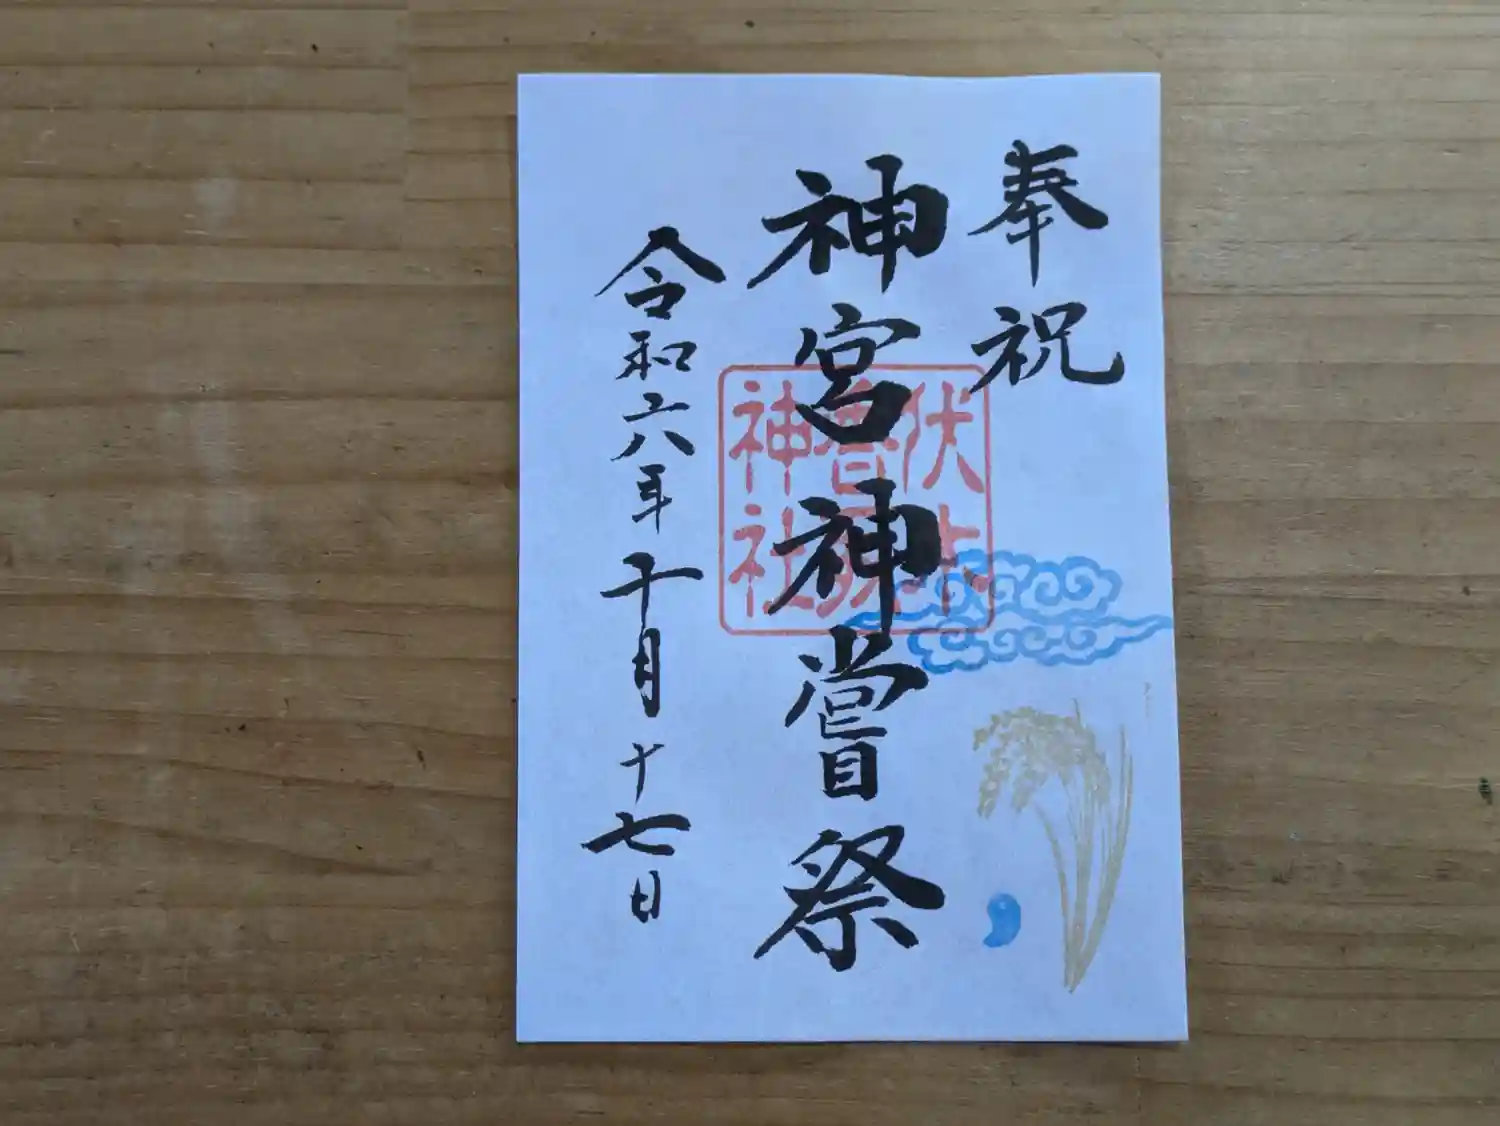 奉祝
神宮神嘗祭
令和六年十月十七日
伏
神社